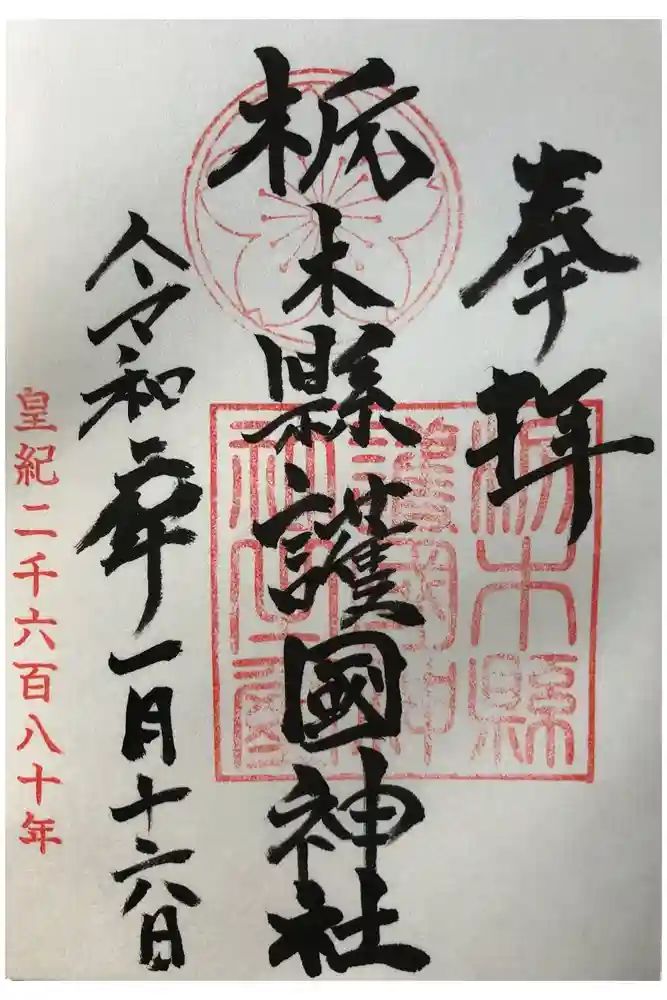 奉拝
栃木縣護國神社
令和二年一月十六日
皇紀二千六百八十年
栃木縣
護國神
社之印